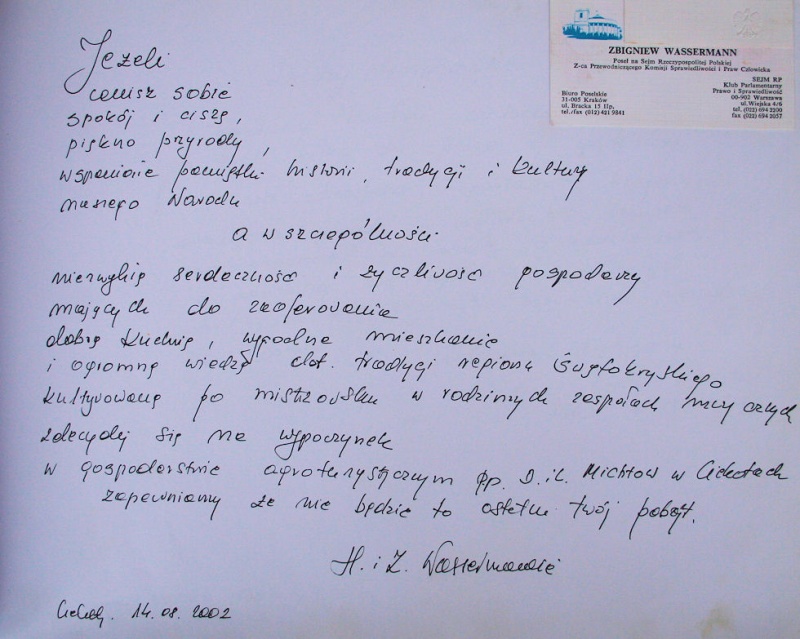 ZBIGNIEW WASSERMANN
Poseł na Sejm Rzeczypospolitej Polskiej
Z-ca Przewodniczącego Komisji Sprawiedliwości i Praw Człowieka
SEJM RP
Klub Parlamentarny
Prawo i Sprawiedliwość
00-902 Warszawa
ul. Wiejska 4/6
tel. (022) 694 2200
fax (022) 694 2057
Biuro Poselskie
31-005 Kraków
ul. Bracka 15 IIp,
tel./fax (012) 421 9841
Jeżeli
cenisz sobie
spokój i ciszę,
piękno przyrody,
wspaniałe pamiątki historii, tradycji i kultury
naszego Narodu
a w szczególności
niezwykłą serdeczność i życzliwość gospodarzy
mających do zaoferowania
dobrą kuchnię, wygodne mieszkanie
i ogromną wiedzę dot. tradycji regionu Świętokrzyskiego
kultywowaną po mistrzowsku w rodzinnych zespołach muzycznych
zdecyduj się na wypoczynek
w gospodarstwie agroturystycznym pp. D. i L. Michtów w
zapewniamy że nie będzie to ostatni twój pobyt.
H. i Z. Wassermanowie
14.08.2002